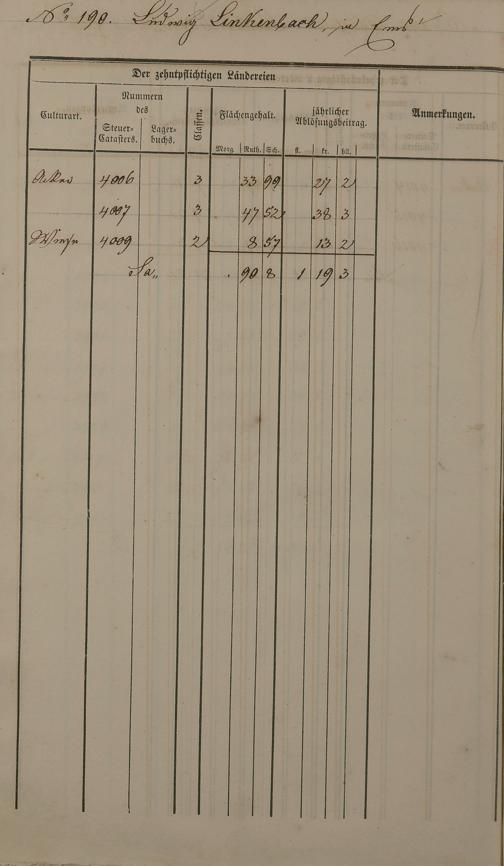 No. 190. Ludwig Linkenbach, in Ems
Der zehntpflichtigen Ländereien
Culturart.
Nummern des
Steuer-Catasters.
Lager-buchs.
Classen.
Flächengehalt.
Morg. Ruth. Sch.
jährlicher Ablösungsbeitrag.
fl. kr. hll.
Anmerkungen.
Acker 4006 3 33 99 27 2
4007 3 47 52 38 3
Wiese 4009 2 8 57 13 2
Sa. . 90 8 1 19 3